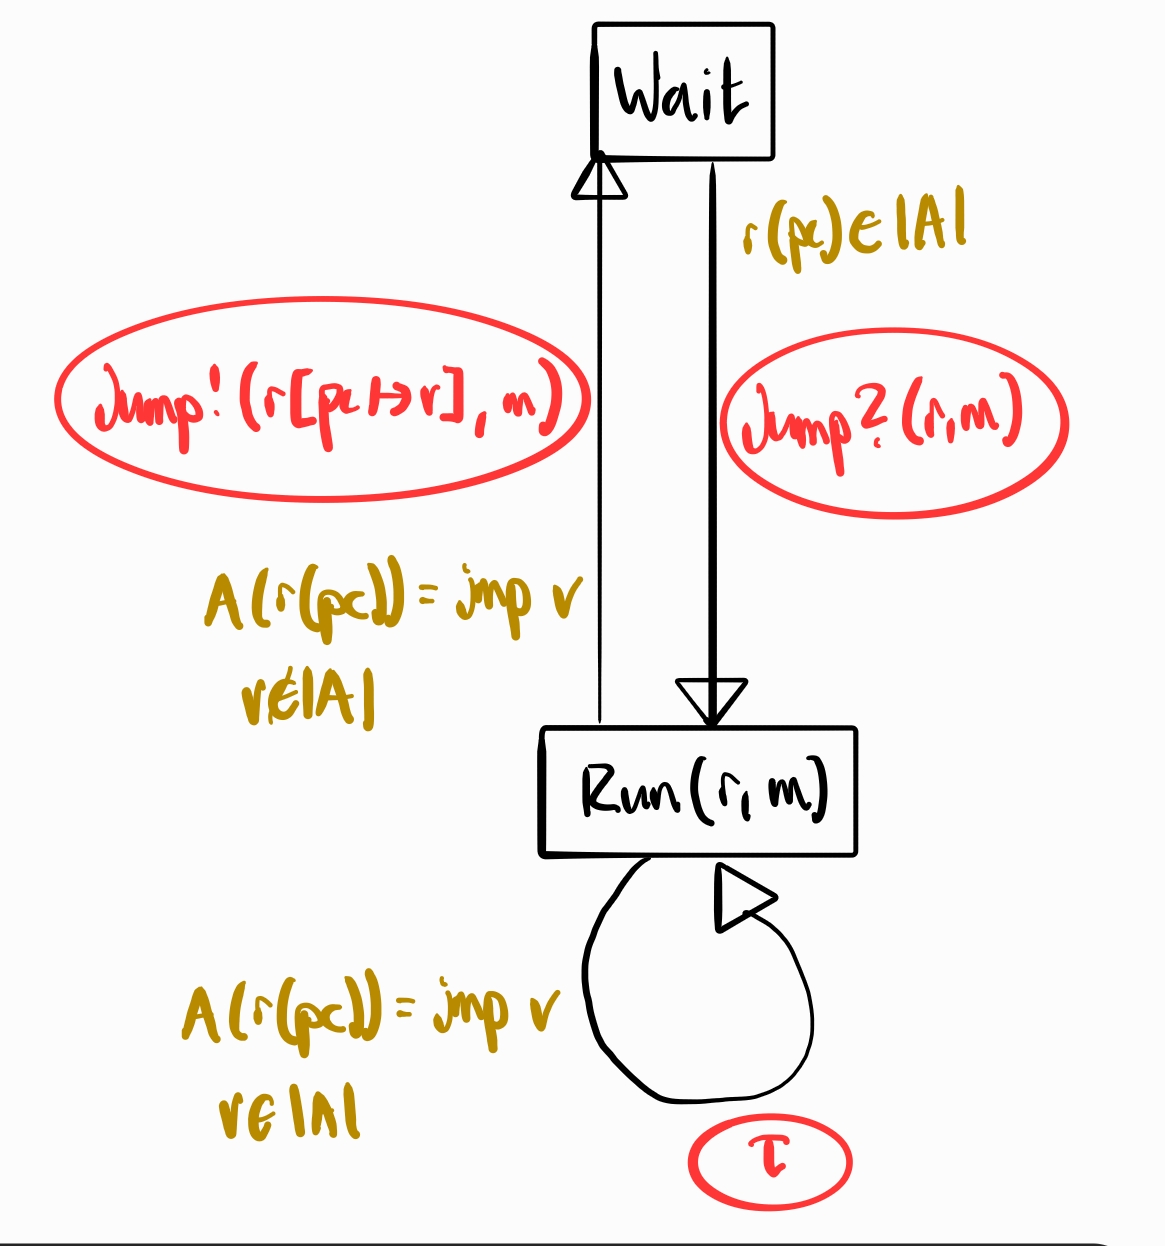 Wait
r(pc)∈|A|
Jump!(r[pc↦v], m)
Jump?(r,m)
A(r(pc)) = jmp v
v∉|A|
Run(r, m)
A(r(pc)) = jmp v
v∈|A|
τ